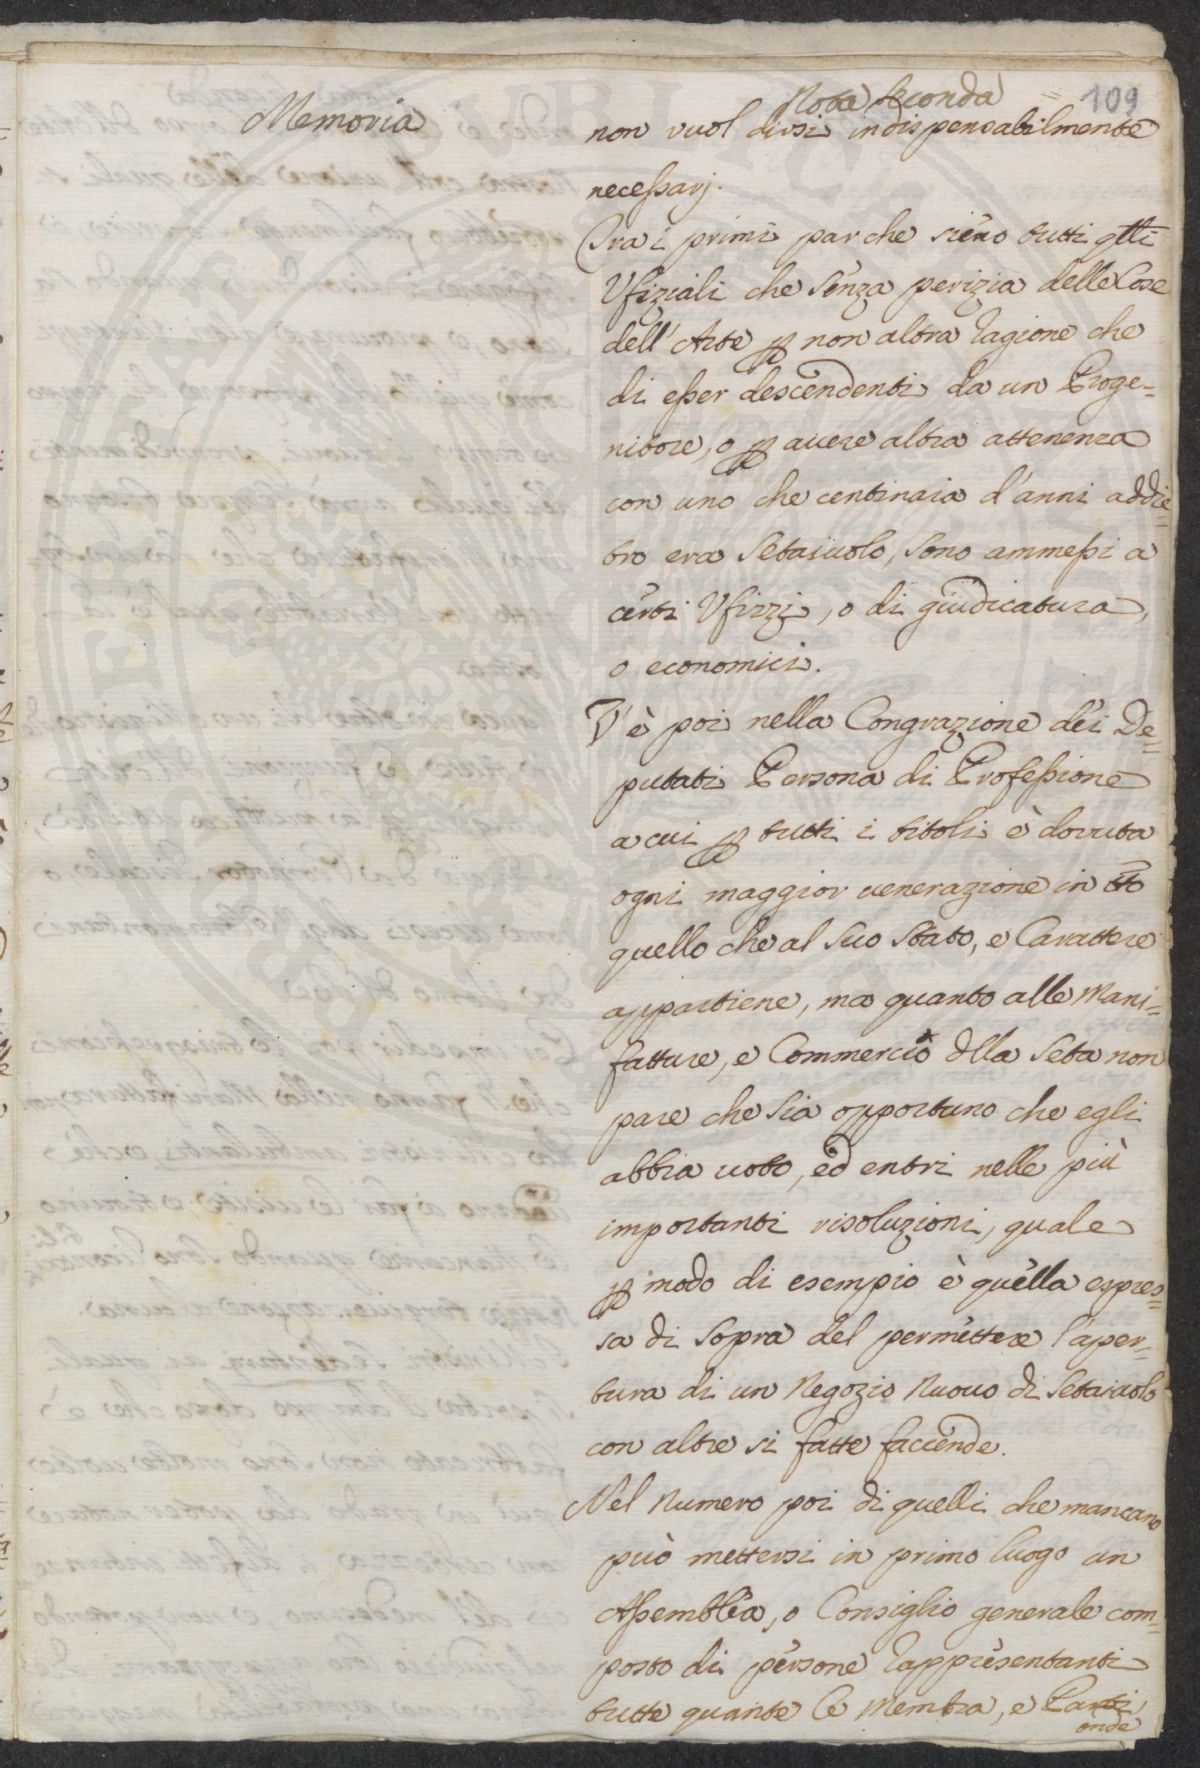 109
Memoria
Nota Seconda
non vuol dirsi indispensabilmente
necessarj.
Tra i primi par che sieno tutti gli
Ufiziali che senza perizia delle Cose
dell'Arte p non altra ragione che
di esser descendenti da un Proge=
nitore, o p avere altra attenenza
con uno che centinaia d'anni addie=
tro era Setaiuolo, sono ammessi a
certi Ufizzi, o di giudicatura,
o economici.
V'è poi nella Congrazione dei De=
putati Persona di Professione
a cui p tutti i titoli è dovuta
ogni maggior venerazione in tto
quello che al suo Stato, e Carattere
appartiene, ma quanto alle Mani=
fatture, e Commercio dlla Seta non
pare che sia opportuno che egli
abbia voto, ed entri nelle più
importanti risoluzioni, quale
p modo di esempio è quella espres=
sa di sopra del permettere l'aper=
tura di un Negozio Nuovo di Setaiuolo
con altre si fatte faccende.
Nel Numero poi di quelli che mancano
può mettersi in primo luogo un
Assemblea, o Consiglio generale com=
posto di persone rappresentanti
tutte quante le Membra, e Parti
onde